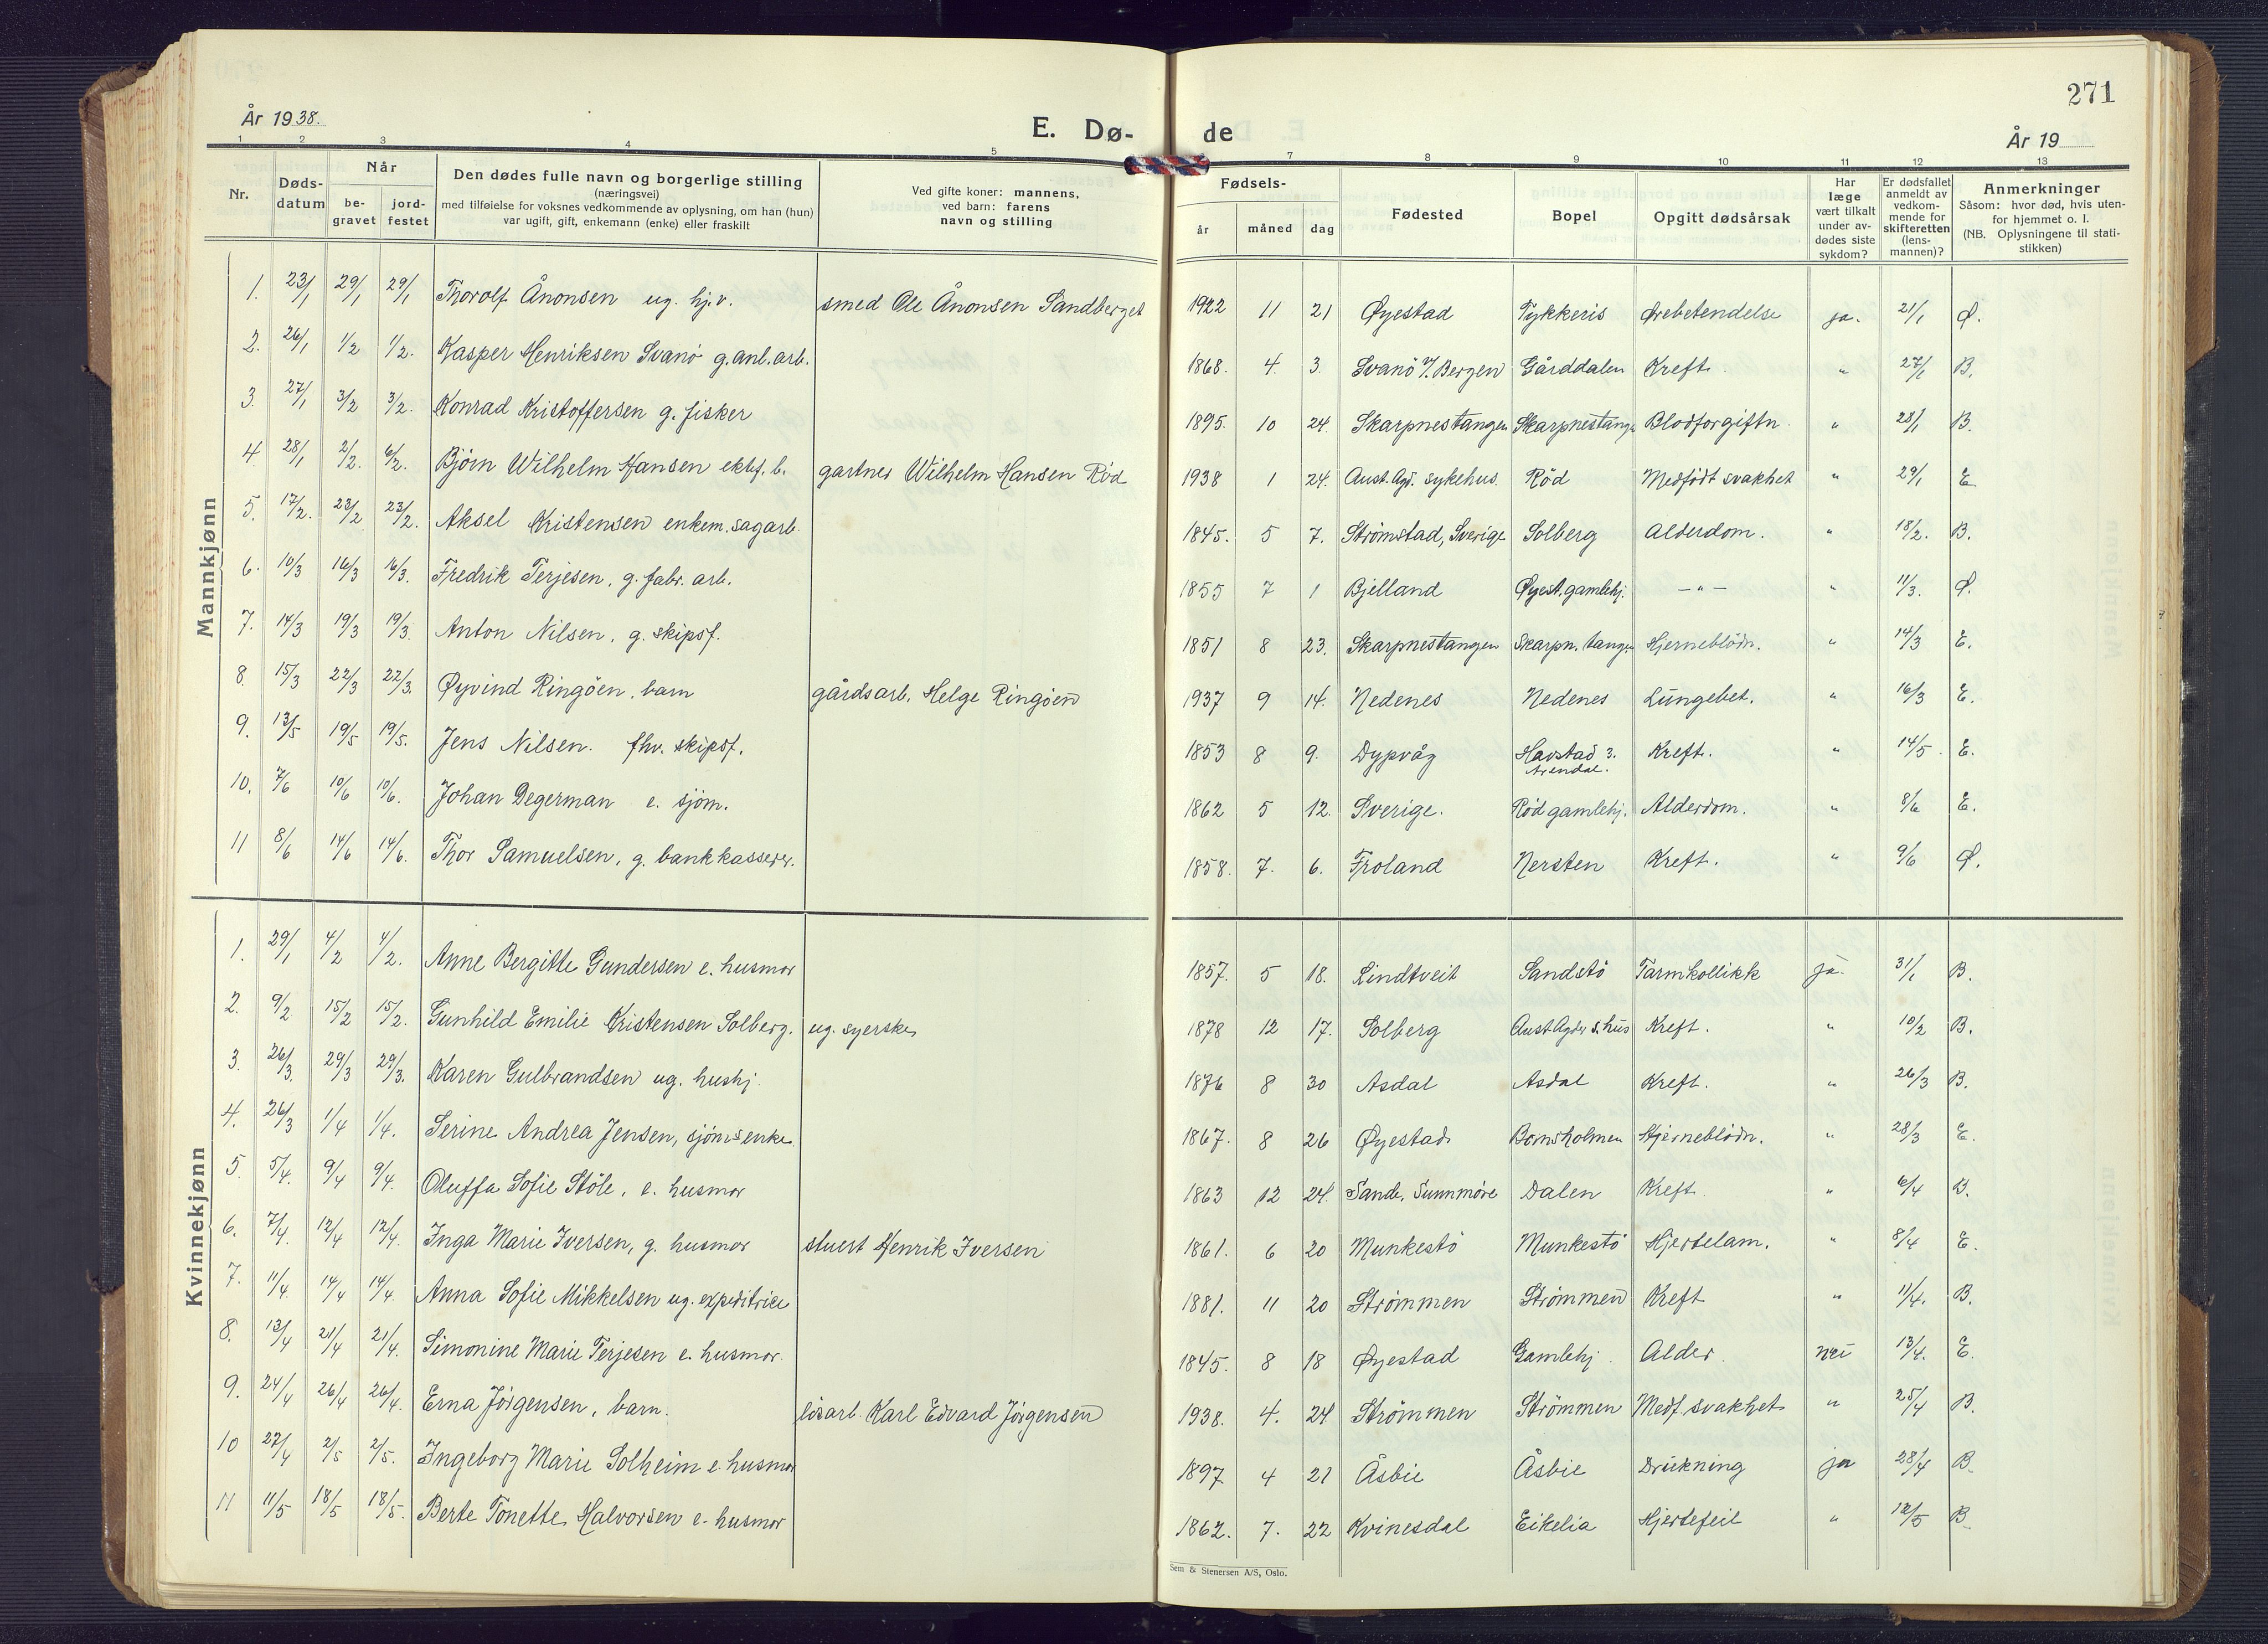 271
År 1938.
E. Dø-
de
År 19
1 2 3 4 5 7 8 9 10 11 12 13
Nr.
Døds-
datum
Når
be-
gravet
jord-
festet
Den dødes fulle navn og borgerlige stilling
(næringsvei)
med tilføielse for voksnes vedkommende av oplysning, om han (hun)
var ugift, gift, enkemann (enke) eller fraskilt
Ved gifte koner: mannens,
ved barn: farens
navn og stilling
Fødsels-
år måned dag
Fødested
Bopel
Opgitt dødsårsak
Har
læge
vært tilkalt
under av-
dødes siste
sykdom?
Er dødsfallet
anmeldt av
vedkom-
mende for
skifteretten
(lens-
mannen)?
Anmerkninger
Såsom: hvor død, hvis uten-
for hjemmet o. l.
(NB. Oplysningene til stati-
stikken)
Mannkjønn
1. 23/1 29/1 29/1 Thorolf Ånonsen ug. hj.v. smed Ole Ånonsen Sandberget 1922 11 21 Øyestad Tykkeris Ørebetendelse ja. 21/1 Ø.
2. 26/1 1/2 1/2. Kasper Henriksen Svanö g. anl. arb. 1868. 4. 3. Svanö v/ Bergen Gårddalen Kreft. " 27/1 B.
3. 27/1 3/2 3/2. Konrad Kristoffersen g. fisker 1895. 10 24 Skarpnestangen Skarpnestang. Blodforgiftn. " 28/1 B.
4. 28/1 2/2. 6/2. Björn Wilhelm Hansen ektef. b. gartner Wilhelm Hansen Röd 1938 1 24. Aust. Agd. sykehus. Röd Medfödt svakhet " 29/1 E
5. 17/2. 23/2 23/2. Aksel Kristensen enkem. sagarb. 1845. 5 7. Strömstad, Sverige Solberg Alderdom. " 18/2. B.
6. 10/3 16/3 16/3. Fredrik Terjesen, g. fabr. arb. 1855 7 1 Bjelland Øyest. gamlehj. — " — " 11/3. Ø.
7. 14/3 19/3 19/3. Anton Nilsen, g. skipsf. 1851 8 23. Skarpnestangen Skarpn. tangen Hjerneblödn. " 14/3 E.
8. 15/3 22/3 22/3. Øyvind Ringöen, barn gårdsarb. Helge Ringöen 1937 9 14. Nedenes Nedenes Lungebet. " 16/3 E.
9. 13/5 19/5 19/5. Jens Nilsen. fhv. skipsf. 1853 8 9. Dypvåg Havstad 3. Arendal. Kreft. " 14/5. E.
10. 7/6 10/6 10/6. Johan Degerman e. sjöm. 1862 5 12. Sverige. Röd gamlehj. Alderdom. " 8/6 E.
11 8/6 14/6 14/6. Thor Samuelsen, g. bankkasserer. 1858. 7. 6. Froland Nersten Kreft. " 9/6 Ø.
Kvinnekjønn
1. 29/1 4/2 4/2. Anne Bergitte Gundersen e. husmor 1857. 5 18. Lindtveit Sandstö Tarmkollikk ja. 31/1 B.
2. 9/2 15/2 15/2. Gunhild Emilie Kristensen Solberg. ug. syerske 1878 12 17. Solberg Aust Agder s. hus Kreft. " 10/2 B.
3. 26/3. 29/3 29/3. Karen Gulbrandsen ug. hushj. 1876 8 30 Asdal Asdal Kreft. " 26/3 B.
4. 26/3 1/4 1/4. Serine Andrea Jensen, sjömsenke. 1867. 8 26 Øyestad Bornsholmen Hjerneblödn. " 28/3 E.
5 5/4. 9/4 9/4. Oluffa Sofie Støle, e. husmor 1863 12 24. Sande, Sunnmöre Dalen Kreft. " 6/4 B.
6. 7/4. 12/4 12/4. Inga Marie Iversen, g. husmor stuert Henrik Iversen 1861. 6 20 Munkestö Munkestö Hjertelam. " 8/4 E.
7. 11/4. 14/4 14/4. Anna Sofie Mikkelsen ug. expeditrice 1881. 11 20 Strömmen Strömmen Kreft " 11/4. B.
8. 13/4 21/4 21/4. Simonine Marie Terjesen e. husmor. 1845. 8 18 Øyestad Gamlehj. Alder. nei 13/4. E.
9. 24/4 26/4 26/4. Erna Jörgensen, barn. lösarb. Karl Edvard Jörgensen 1938. 4. 24 Strömmen Strömmen Medf. svakhet " 25/4 B.
10 27/4 2/5 2/5. Ingeborg Marie Solheim e. husmor 1897 4 21 Åsbie Åsbie Drukning ja 28/4 B.
11 11/5 18/5 18/5. Berte Tonette Halvorsen e. husmor 1862. 7. 22 Kvinesdal Eikelia Hjertefeil " 12/5 B.
Sem & Stenersen A/S, Oslo.